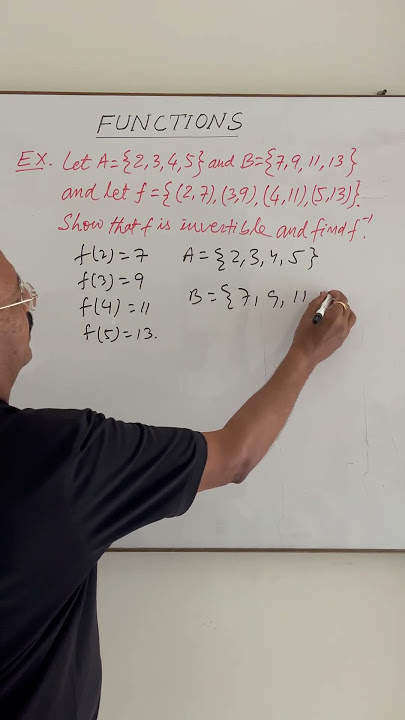 FUNCTIONS
EX. Let A={2,3,4,5} and B={7,9,11,13}
and let f={(2,7),(3,9),(4,11),(5,13)}.
Show that f is invertible and find f⁻¹.
f(2)=7 A={2,3,4,5}
f(3)=9
f(4)=11 B={7,9,11,
f(5)=13.